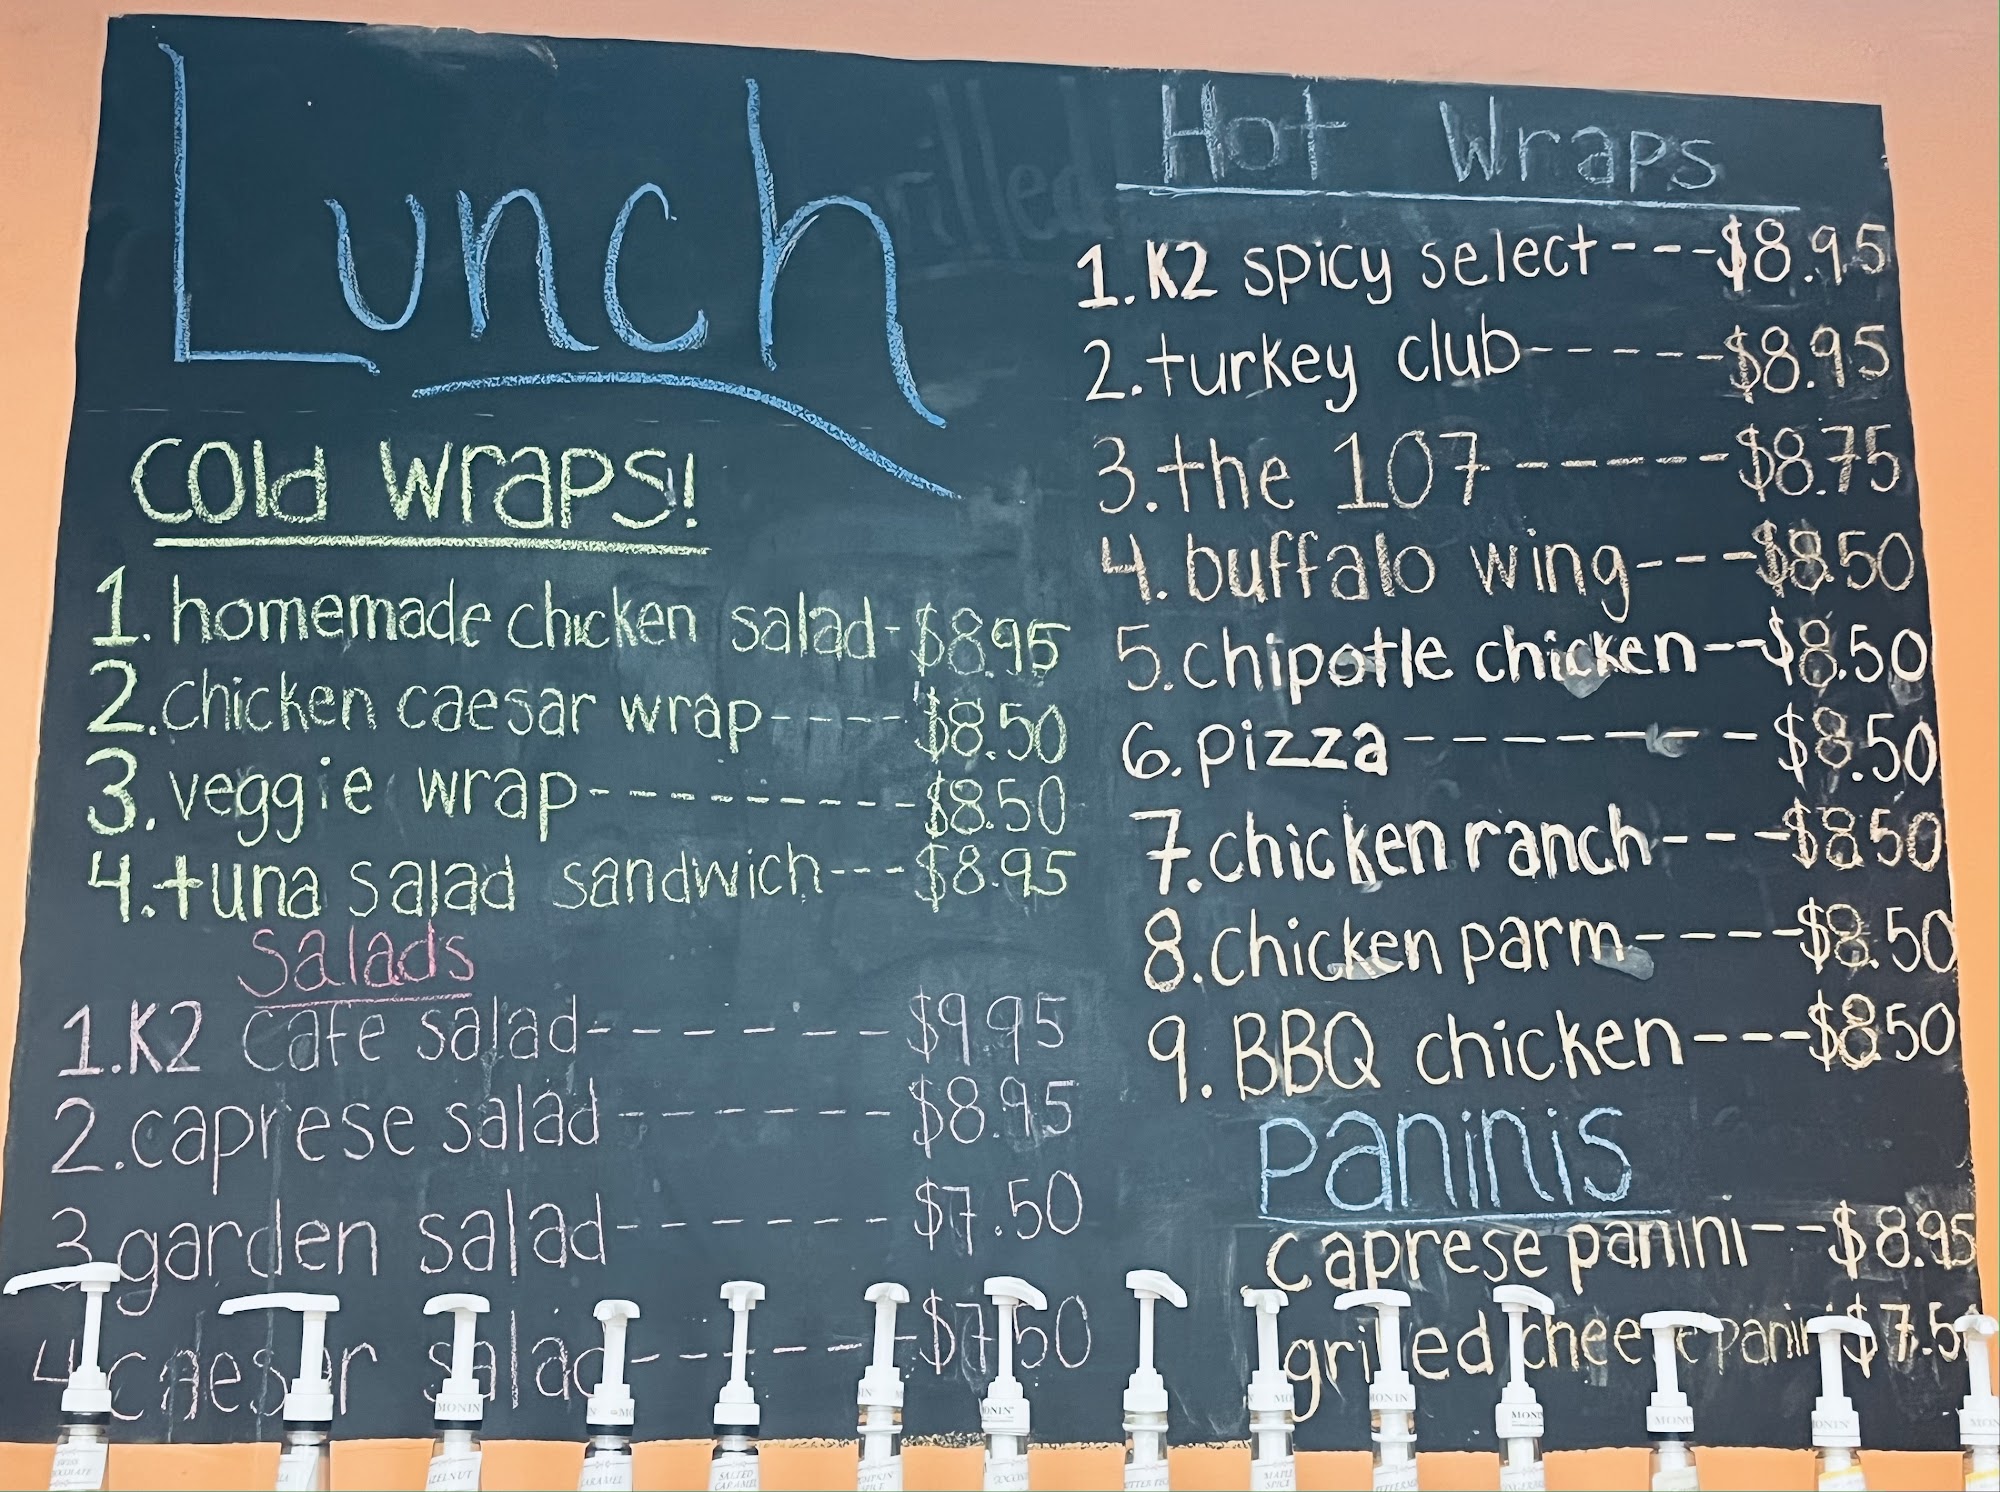 Lunch
Cold Wraps!
1. homemade chicken salad-$8.95
2. chicken caesar wrap----$8.50
3. veggie wrap---------$8.50
4. tuna salad sandwich---$8.95
Salads
1. K2 cafe salad-------$9.95
2. caprese salad------$8.95
3. garden salad------$7.50
4 caesar salad------$7.50
Hot Wraps
1. K2 spicy select---$8.95
2. turkey club-----$8.95
3. the 107------$8.75
4. buffalo wing---$8.50
5. chipotle chicken--$8.50
6. pizza--------$8.50
7. chicken ranch---$8.50
8. chicken parm----$8.50
9. BBQ chicken---$8.50
Paninis
caprese panini--$8.95
grilled cheese panini $7.50
rilled
MONIN
MONIN
MONIN
MONIN
MONIN
SALTED
CARAMEL
MAPLE
SPICE